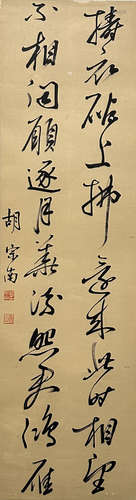 擣衣砧上拂還來此時相望
不相聞願逐月華流照君鴻雁
胡宗南